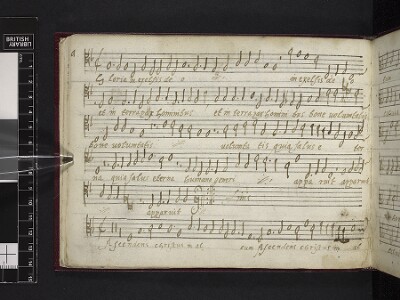 BRITISH LIBRARY
Gloria in excelsis de o in excelsis de o
et in terra pax hominibus et in terra pax homini bus bone voluntatis
bone voluntatis volunta tis quia salus e ter
na quia salus eterna humano generi appa ruit apparuit
apparuit
Ascendens christus in al tum Ascendens christus in al